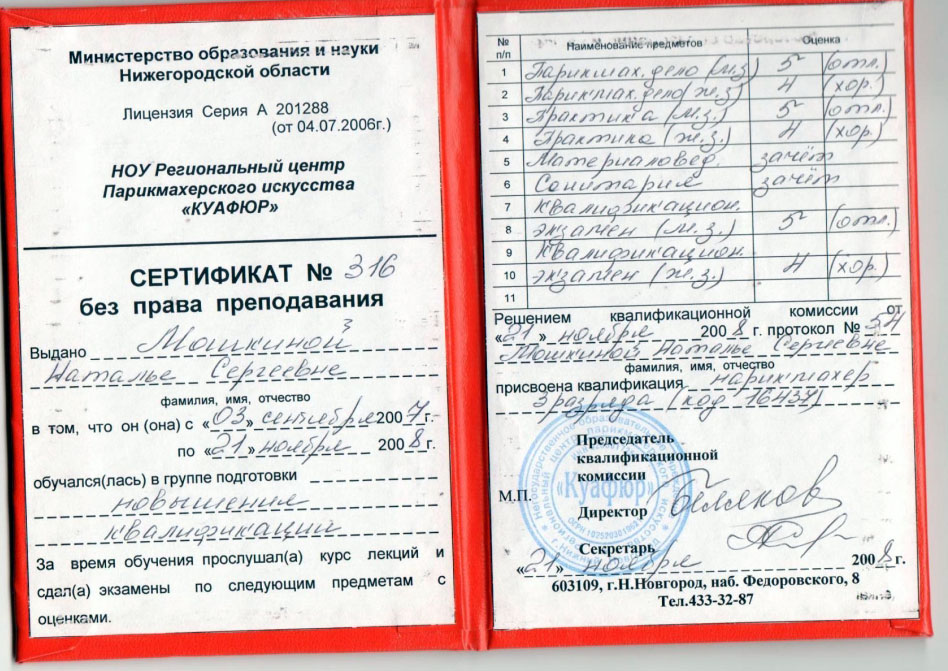 Министерство образования и науки
Нижегородской области
Лицензия Серия А 201288
(от 04.07.2006г.)
НОУ Региональный центр
Парикмахерского искусства
«КУАФЮР»
СЕРТИФИКАТ № 316
без права преподавания
Выдано Мошкиной
Наталье Сергеевне
фамилия, имя, отчество
в том, что он (она) с «03» сентября 2007 г.
по «21» ноября 2008 г.
обучался(лась) в группе подготовки
повышения
квалификации
За время обучения прослушал(а) курс лекций и
сдал(а) экзамены по следующим предметам с
оценками.
№ п/п Наименование предметов Оценка
1 Парикмах. дело (м.з) 5 (отл.)
2 Парикмах. дело (ж.з) 4 (хор.)
3 Практика (м.з.) 5 (отл.)
4 Практика (ж.з.) 4 (хор.)
5 Материаловед. зачёт
6 Санитария зачёт
7 Квалификацион.
8 экзамен (м.з.) 5 (отл.)
9 Квалификацион.
10 экзамен (ж.з.) 4 (хор.)
11
Решением квалификационной комиссии от
«21» ноября 2008 г. протокол № 54
Мошкиной Наталье Сергеевне
фамилия, имя, отчество
присвоена квалификация парикмахер
3 разряда (код 16437)
Председатель
квалификационной
комиссии
М.П.
«Куафюр»
Директор
Секретарь
«21» ноября 2008 г.
603109, г.Н.Новгород, наб. Федоровского, 8
Тел.433-32-87